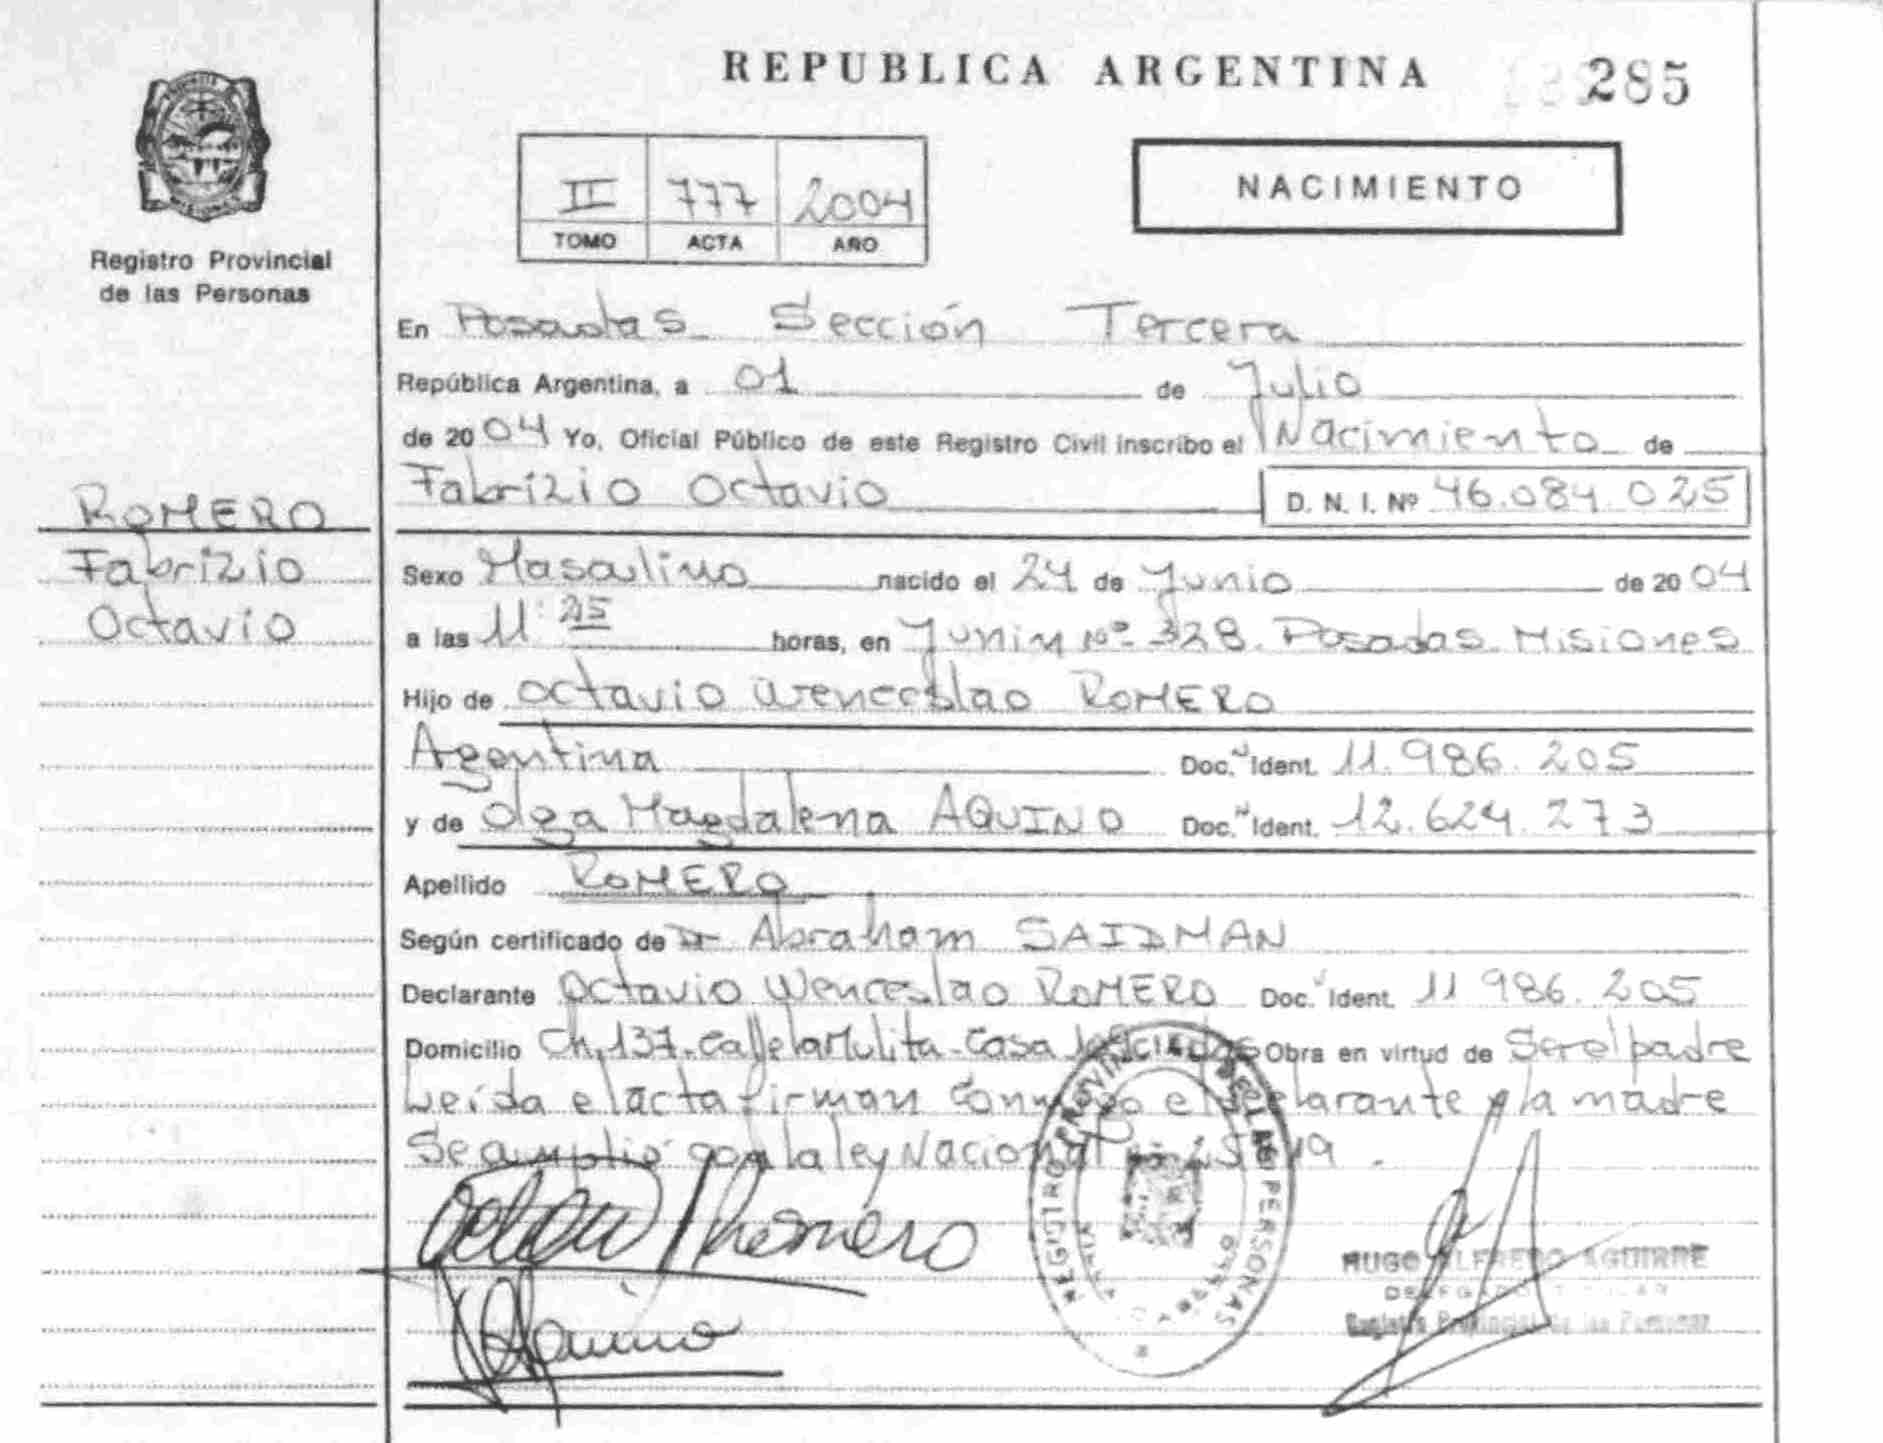 REPUBLICA ARGENTINA
285
II 777 2004
TOMO ACTA AÑO
NACIMIENTO
Registro Provincial
de las Personas
En Posadas Sección Tercera
República Argentina, a 01 de Julio
de 2004 Yo, Oficial Público de este Registro Civil inscribo el Nacimiento de
Fabrizio Octavio D. N. I. Nº 46.084.025
ROMERO
Fabrizio
Octavio
Sexo Masculino nacido el 24 de Junio de 2004
a las 11:25 horas, en Junin Nº 328. Posadas Misiones
Hijo de Octavio Wenceslao ROMERO
Agentina Doc. Ident. 11.986.205
y de Olga Magdalena AQUINO Doc. Ident. 12.624.273
Apellido ROMERO
Según certificado de Dr Abraham SAIDMAN
Declarante Octavio Wenceslao ROMERO Doc. Ident. 11 986.205
Domicilio Ch. 137. Calle la Mulita - Casa Obra en virtud de Ser el padre
Leída el acta firman conmigo el declarante y la madre
Se cumplió con la ley Nacional
Romero
Aquino
REGISTRO PROVINCIAL DE LAS PERSONAS
HUGO ALFREDO AGUIRRE
DELEGADO TITULAR
Registro Provincial de las Personas